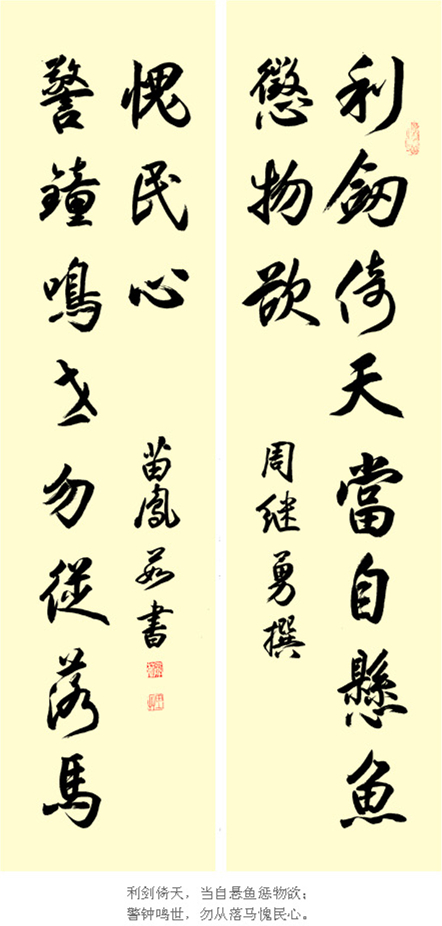 利劔倚天當自懸魚
懲物欲
周继勇撰
警鐘鳴世勿從落馬
愧民心
苗鳳茹書
利剑倚天，当自悬鱼惩物欲；
警钟鸣世，勿从落马愧民心。